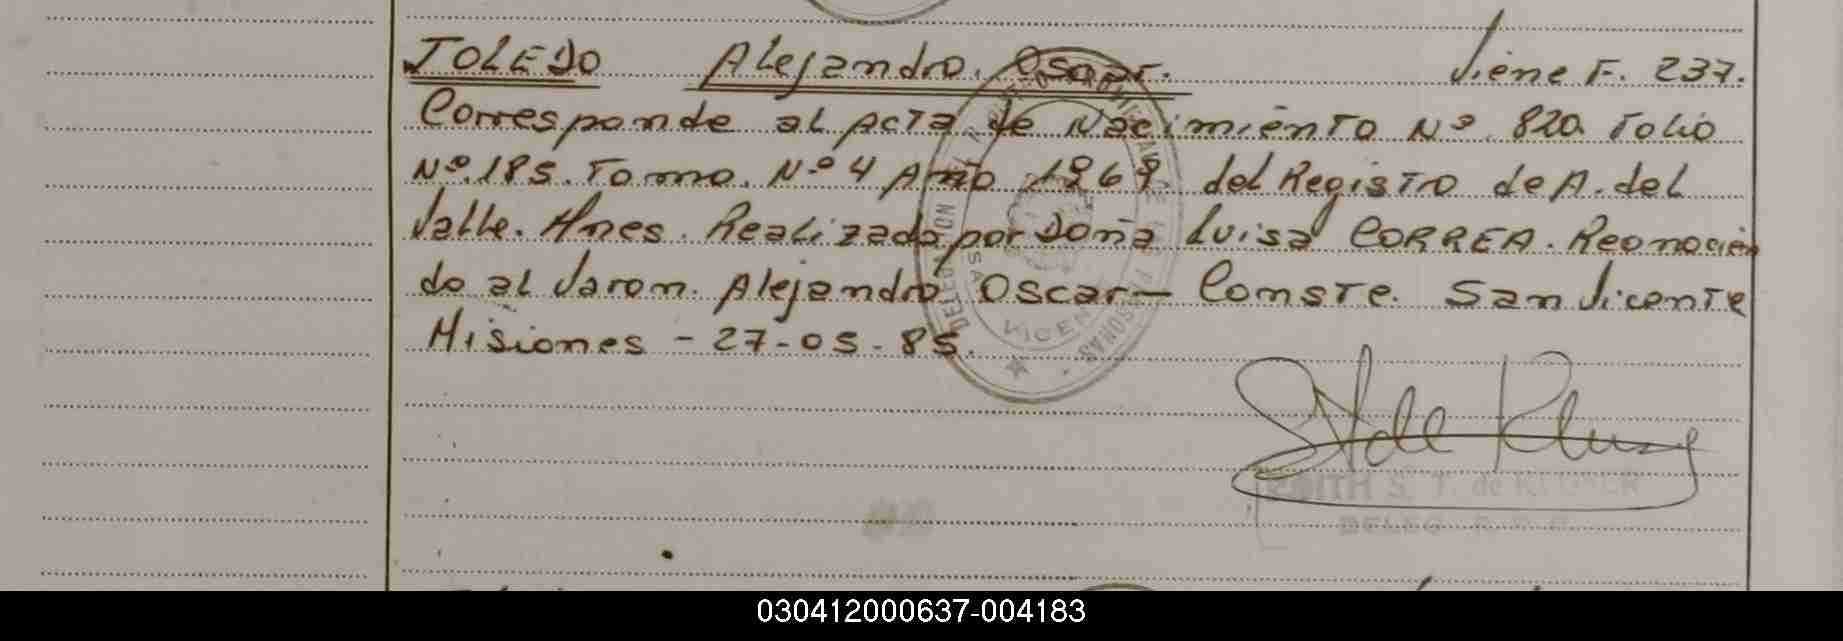 TOLEDO Alejandro. Oscar. Viene F. 237.
Corresponde al Acta de Nacimiento Nº. 820. Folio
Nº. 185. Tomo. Nº 4 Año 1969 del Registro de A. del
Valle. Mnes. Realizada por Doña Luisa CORREA. Reonocien
do al Varon. Alejandro Oscar— Conste. San Vicente
Misiones - 27-05-85.
EDITH S. T. de KLUNER
DELEG. R. P. P.
030412000637-004183